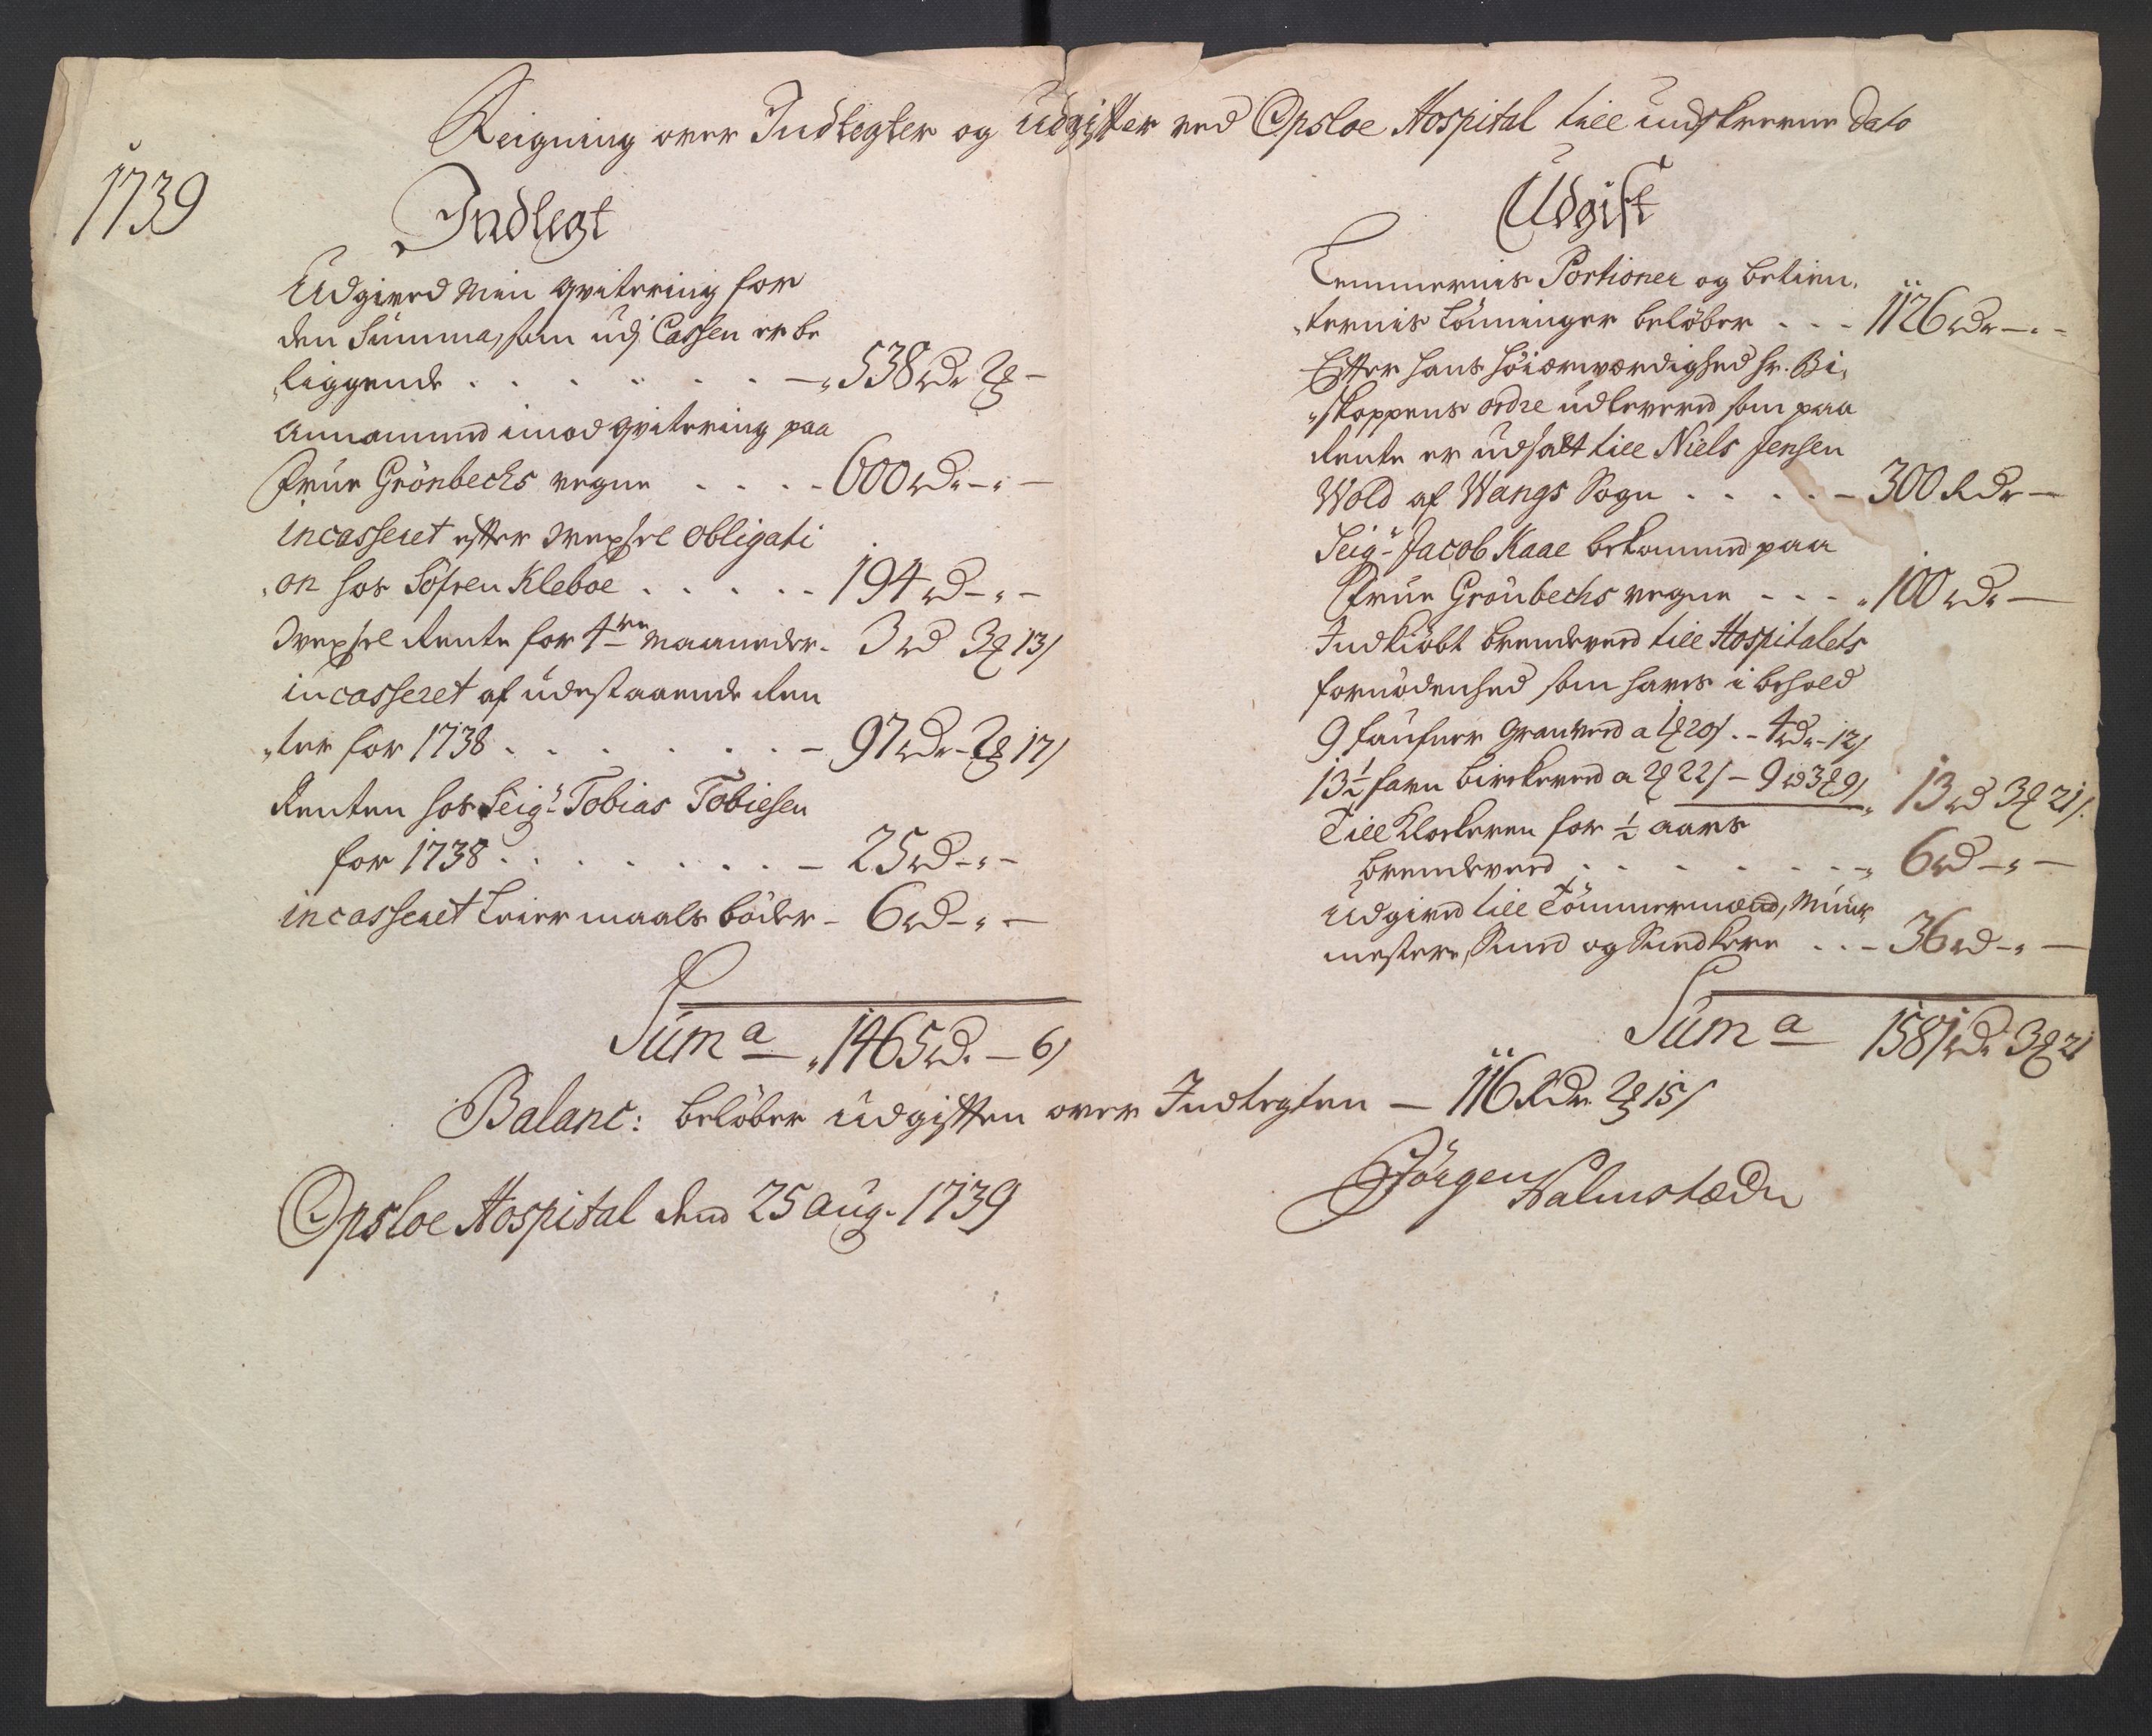 Reigning over Indtegter og Udgifter ved Opsloe Hospital till underskrevne Dato
1739
Indtegt
Udgived Min qvitering for
den Summa, som udj Cassen er be
liggende . . . . . . . — 538 rdr 2 ꝶ —
Annammed imod qvitering paa
Frue Grönbechs vegne . . . . 600 rdr — " —
incasseret efter Wexsel obligati
on hos Söfren Kleboe . . . . . 194 rd — " —
Wexsel Rente for 4re Maaneder - 3 rd 3 ꝶ 13 s
incasseret af udestaaende Ren
ter for 1738 . . . . . . . — 97 rdr - 2 ꝶ 17 s
Renten hos Seigr Tobias Tobiesen
for 1738 . . . . . . . . — 25 rd — " —
incasseret Leiermaals böder - 6 rd — " —
Suma — 1465 rd. — 6 s
Udgift
Lemmernis Portioner og betien,
ternis Lönninger belöber . . . 1126 rdr — " —
Efter hans höiærværdighed hr. Bi,
skoppens ordre udleverd som paa
Rente er udsatt till Niels Jensen
Wold af Wangs Sogn . . . . . — 300 Rdr —
Seigr Jacob Kaae bekommed paa
Frue Grönbechs vegne - - - 100 rdr —
Indkiöbt brendeved till Hospitalets
fornödenhed som haves i behold
9 faufner Granved a 1 ꝶ 20 s . - 4 rdr - 12 s
13 ½ favn birckeved a 2 ꝶ 22 s — 9 rd 3 ꝶ 9 s 13 rd 3 ꝶ 21 s
Till Klockeren for ½ aars
brendeved . . . . . . . 6 rd — " —
Udgived till Tömmermænd, Muur
mestere, Smed og Snedkere . . . 36 rd — " —
Suma 1581 rd. 3 ꝶ 21
Balanc: belöber udgiften over Indtegten — 116 Rdr. 2 ꝶ 15 s
Opsloe Hospital dend 25 aug. 1739
Jörgen Halmstædr